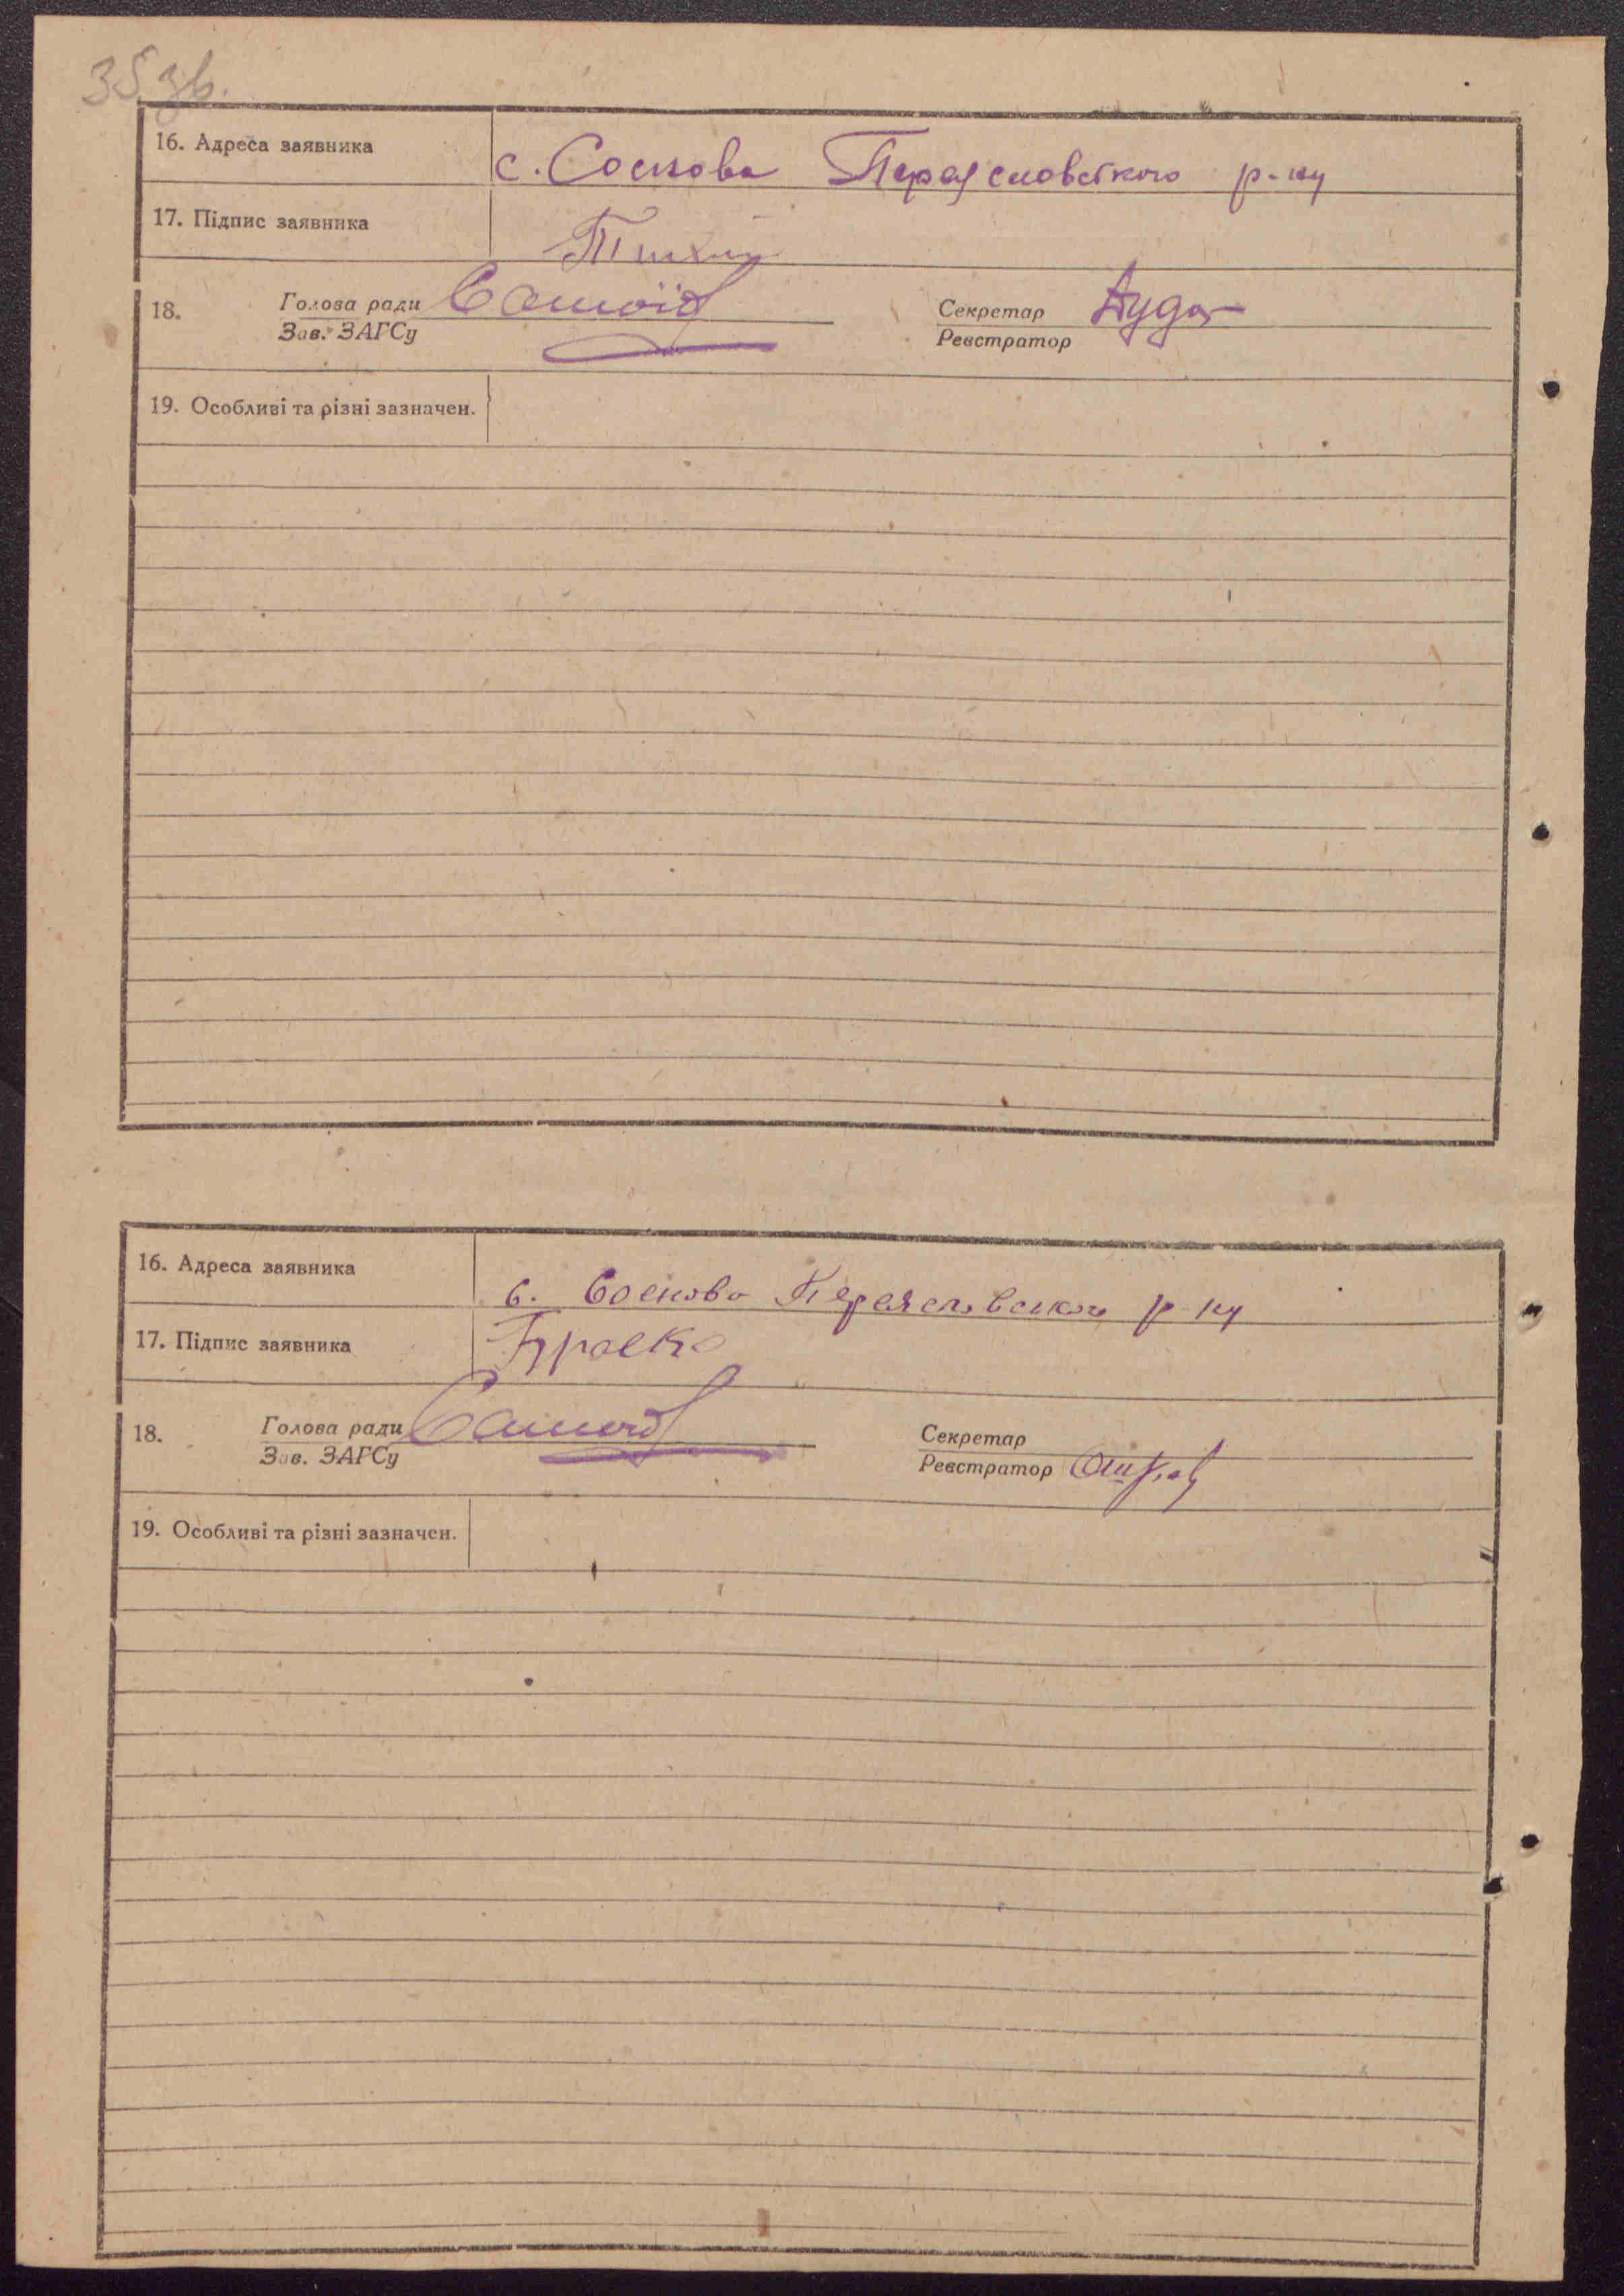 35 зв.
16. Адреса заявника с. Соснова Переяславського р-ну
17. Підпис заявника
18. Голова ради Самойд Секретар Дуда
Зав. ЗАГСу Реєстратор
19. Особливі та різні зазначен.
16. Адреса заявника с. Соснова Переяславського р-ну
17. Підпис заявника
18. Голова ради Секретар
Зав. ЗАГСу Реєстратор
19. Особливі та різні зазначен.